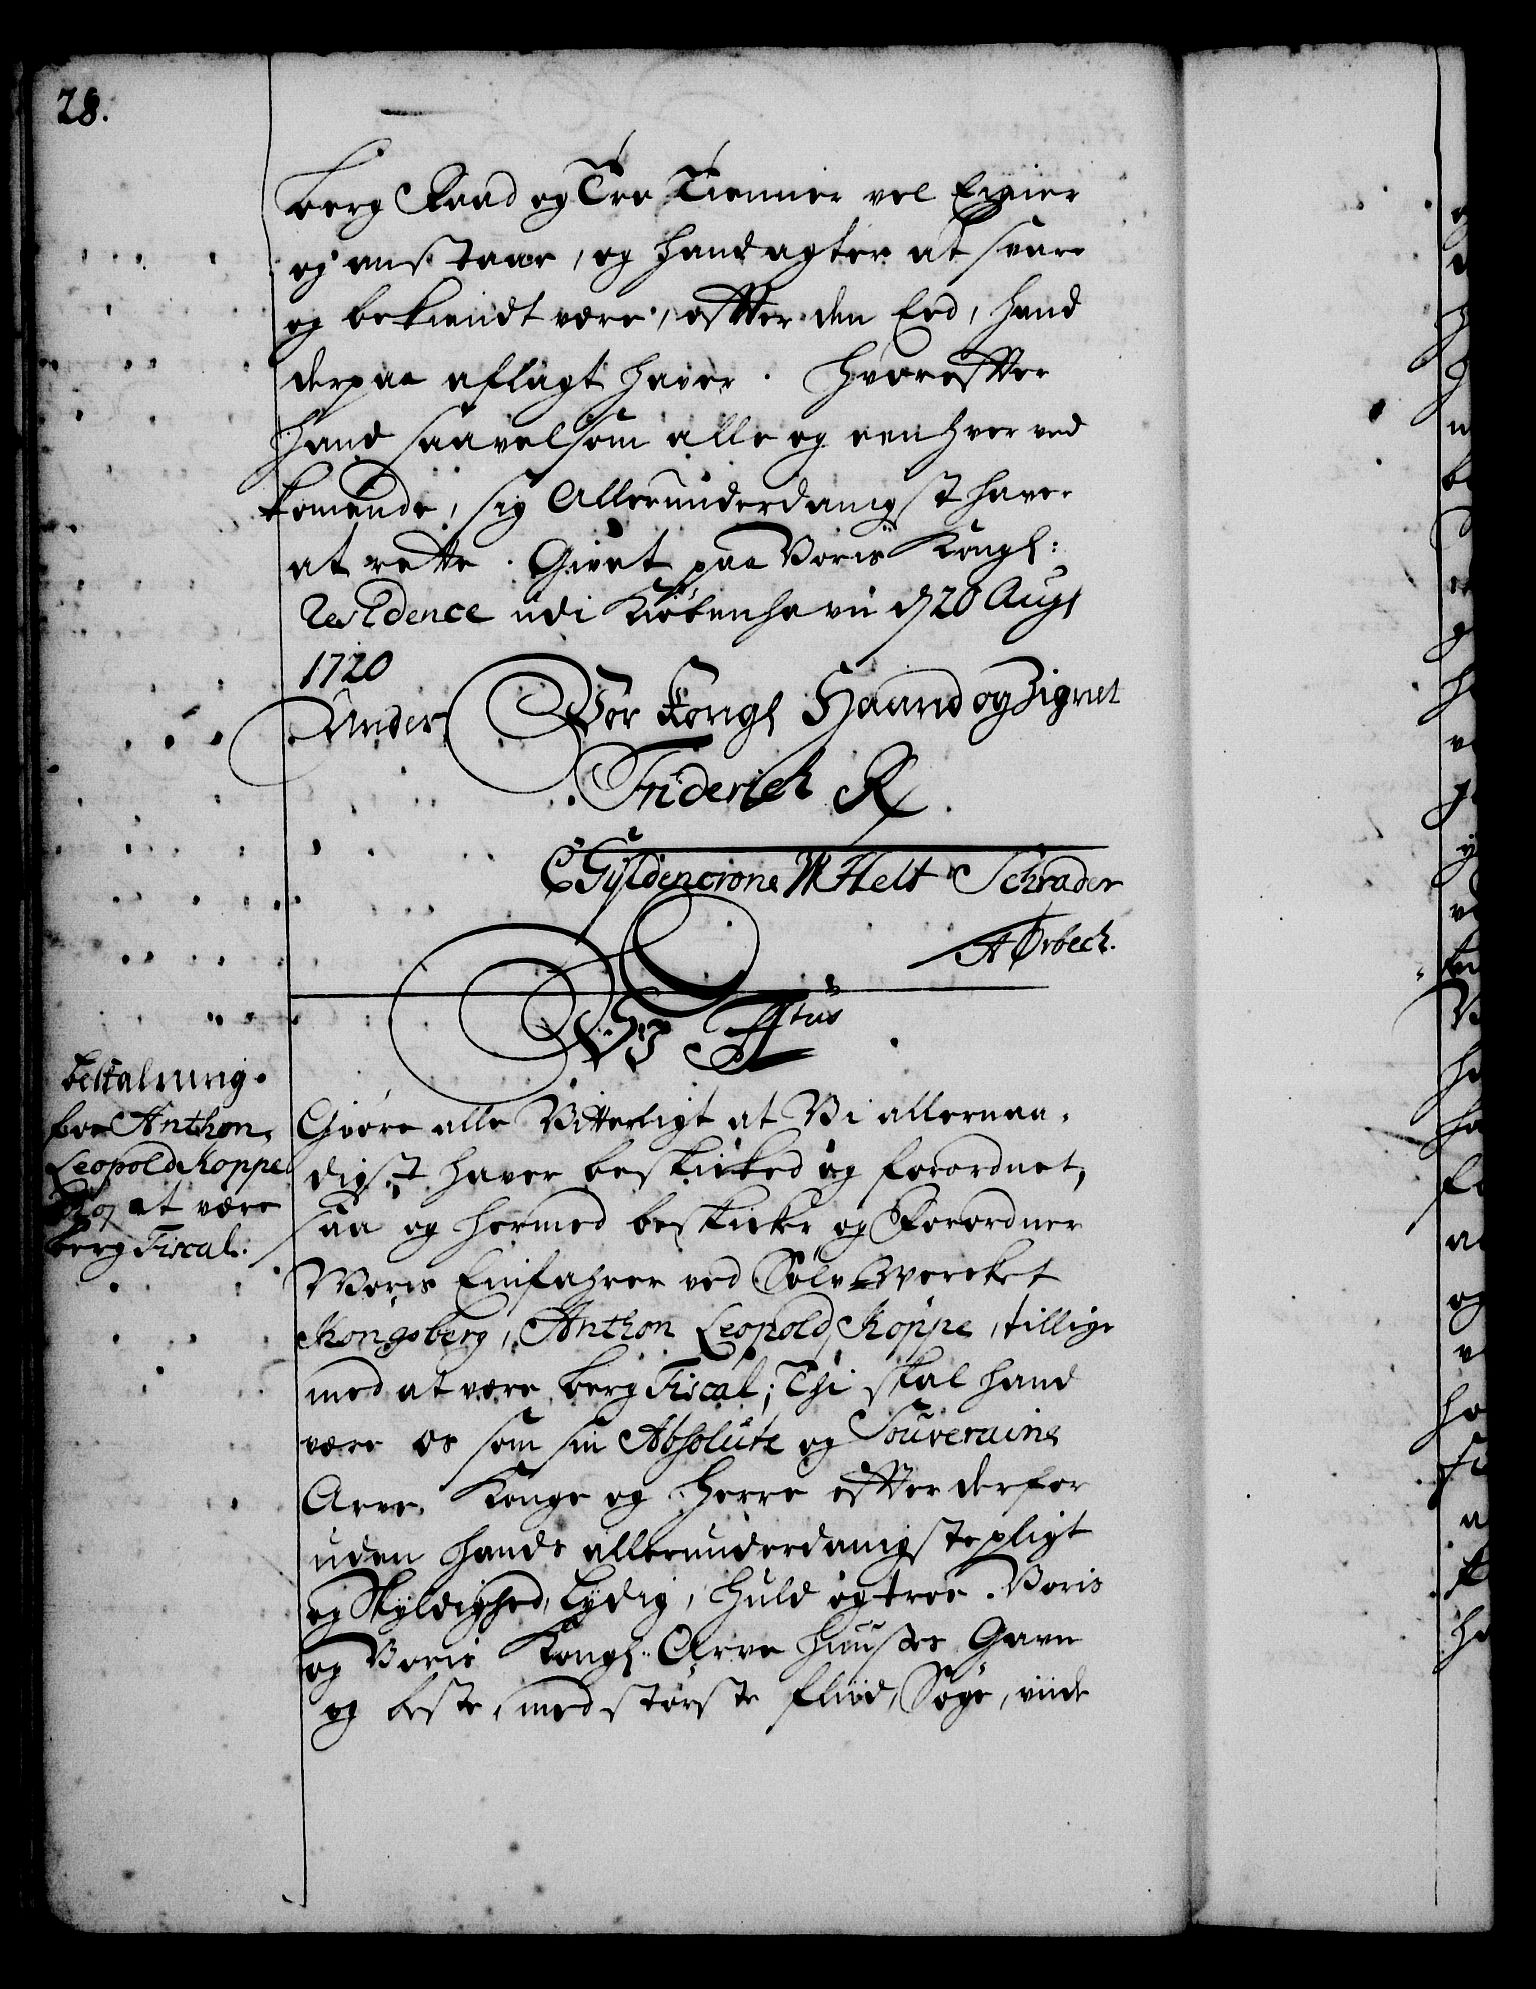 28.
berg Raad og Tro Tienner vel Eigner
og anstaar, og hand agter at svare
og bekiendt være, efter den Eed, hand
derpaa aflagt haver. Hvorefter
hand saavelsom alle og eenhver ved
komende, sig Allerunderdanigst haver
at rette. Givet paa Voris Kongl:
Residence udi Kiøbenhavn d 20 Augt
1720
Under Vor Kongl Haand og Zignet
Friderich R
C Gyldencrone W Helt Schrader
A Ørbech.
Vi F 4tus
bestalning
for Anthon
Leopold Koppe
og at være
berg Fiscal.
Giøre alle Vitterligt at Vi allernaa-
digst haver beskicked og forordnet,
saa og hermed beskicker og Forordner
Vores Einfahrer ved Sølv Wercket
Kongsberg, Anthon Leopold Koppe, tillige
med at være berg Fiscal; Thi skal hand
være os som sin Absolute og Souveraine
Arve Konge og Herre efter derfor
uden hands allerunderdanigste pligt
og Skyldighed, Lydig, Huld og troe. Voris
og Voris Kongl. Arve Huuses Gavn
og beste, med største fliid, Søge, vide